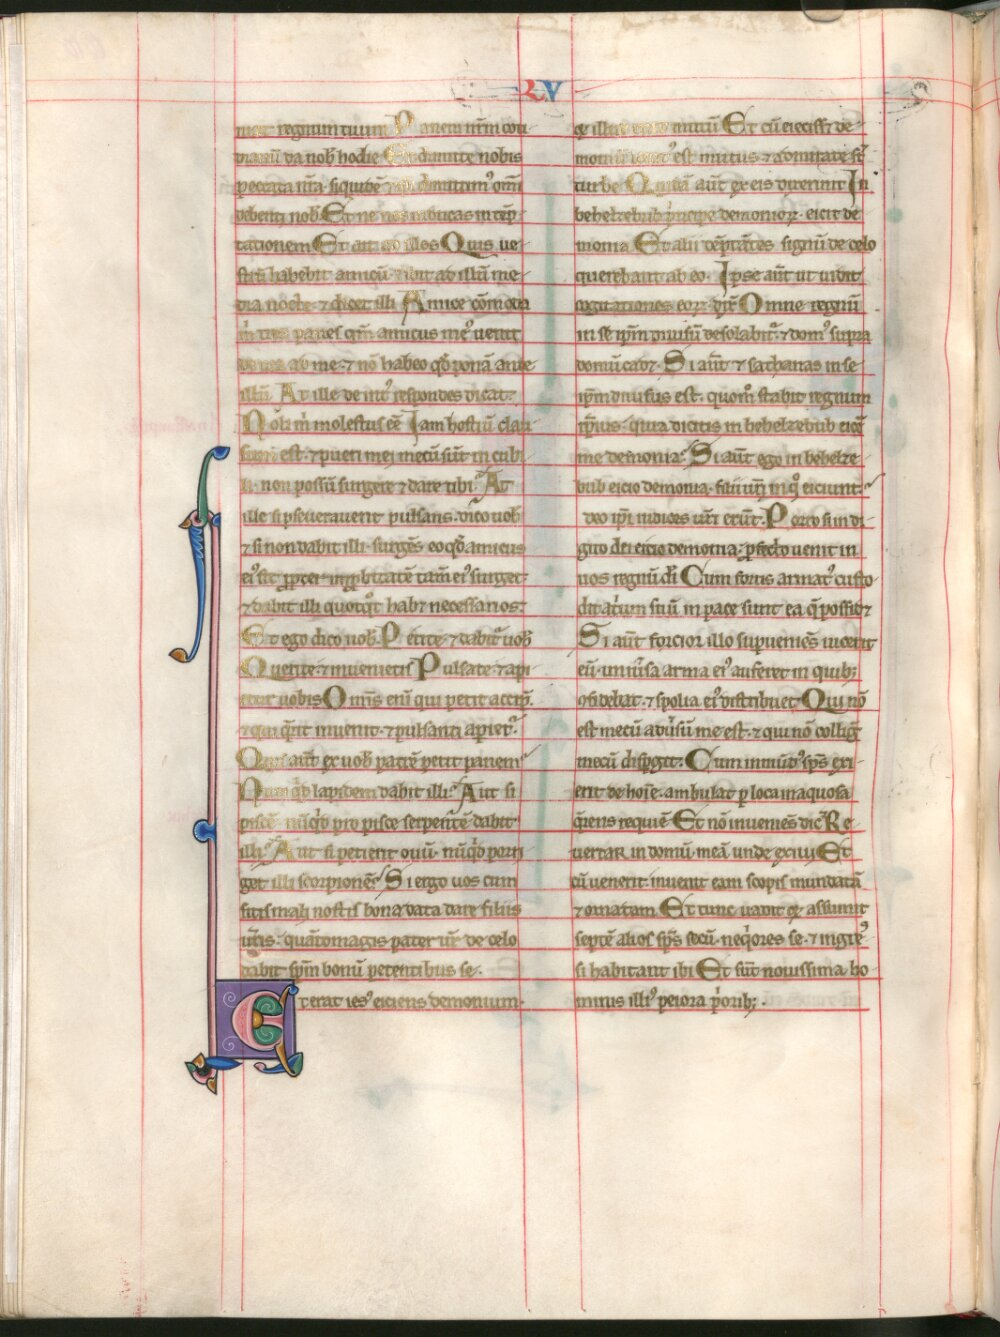 LV
niat regnum tuum Panem nr̄m coti
dianū da nob̄ hodie Et dimitte nobis
peccata nr̄a· siquidē ⁊ ip̄i dimittim᷒ om̄i
debenti nob̄ Et ne nos inducas in tēp
tationem Et ait ad illos Quis ue
str̄m habebit amicū· ⁊ ibit ad illū me
dia nocte· ⁊ dicet illi Amice cōmoda
m̄ tres panes qm̄ amicus me᷒ uenit
de uia ad me· ⁊ nō habeo qd̄ ponā ante
illū· At ille de int᷒ respōdēs dicat·
Noli m̄ molestus eē Iam hostiū clau
sum est· ⁊ pueri mei mecū sūt in cubi
li· non possū surgere ⁊ dare tibi· At
ille si pseuerauerit pulsans· dico uob̄
⁊ si non dabit illi· surgēs eo qd̄ amicus
ei᷒ sit· ppter inpbitatē tam̄ ei᷒ surget·
⁊ dabit illi quotqt habet necessarios·
Et ego dico uob̄· Petite· ⁊ dabit᷒ uob̄
Querite· ⁊ inuenietis Pulsate· ⁊ api
etur uobis Omīs enī qui petit accip̄·
⁊ qui qrit inuenit· ⁊ pulsanti apiet᷒·
Quis aūt ex uob̄ patrē petit panem
Nunqd̄ lapidem dabit illi· Aut si
piscē· nūqd̄ pro pisce serpentē dabit
illi· Aut si petierit ouū· nūqd̄ porri
get illi scorpionē Si ergo uos cum
sitis mali nostis bona data dare filiis
ur̄is· quātomagis pater ur̄ de celo
dabit spm̄ bonū petentibus se·
Et erat ies᷒ eiciens demonium·
⁊ illud erat mutū Et cū eiecisset de
moniū locut᷒ est mutus· ⁊ admirate st̄
turbe Quidā aūt ex eis dixerunt In
behelzebub p̄ncipe demonioꝝ· eicit de
monia Et alii tēptātes signū de celo
querebant ab eo· Ipse aūt ut uidit
cogitationes eoꝝ· dix̄ Omne regnū
in se ip̄m diuisū desolabit᷒· ⁊ dom᷒ supra
domū cadet· Si aūt ⁊ sathanas in se
ip̄m diuisus est· quom̄ stabit regnum
ip̄ius· quia dicitis in behelzebub eicē
me demonia· Si aūt ego in behelze
bub eicio demonia· filii ur̄i in q᷒ eiciunt·
Ideo ip̄i iudices ur̄i erūt· Porro si in di
gito dei eicio demonia· pfecto uenit in
uos regnū dī Cum fortis armat᷒ custo
dit atrium suū in pace sunt ea q̄ possidet
Si aūt forcior illo supueniēs uicerit
eū· uniūsa arma ei᷒ auferet in quib;
ofidebat· ⁊ spolia ei᷒ distribuet Qui nō
est mecū aduersū me est· ⁊ qui nō colligit
mecū dispgit· Cum inmūd᷒ sp̄s exi
erit de hoīe· ambulat p loca inaquosa
q̄rens requiē Et nō inueniēs dic̄ Re
uertar in domū meā unde exiui Et
cū uenerit· inuenit eam scopis mundatā
⁊ ornatam Et tunc uadit ⁊ assumit
septē alios sp̄s secū· neq̄ores se· ⁊ ingres
si habitant ibi Et sūt nouissima ho
minis illi᷒ peiora p̄orib;·